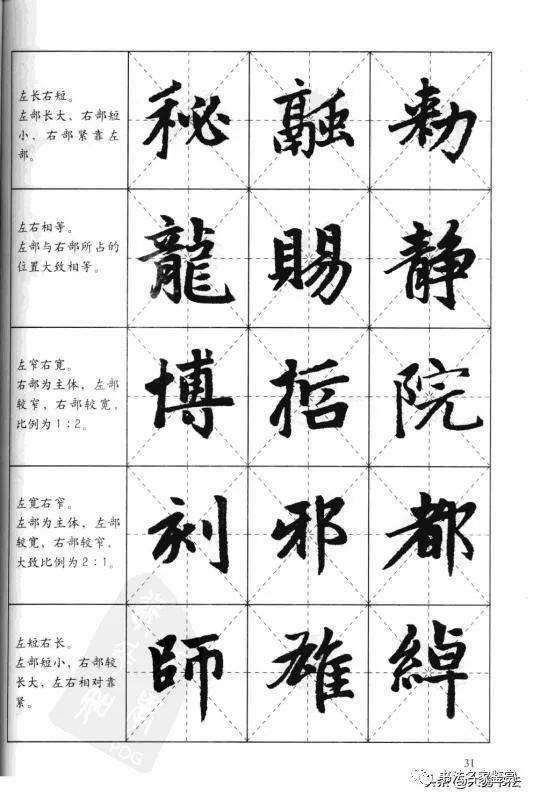 左长右短。
左部长大、右部短
小、右部紧靠左
部。
秘 融 勅
左右相等。
左部与右部所占的
位置大致相等。
龍 賜 静
左窄右宽。
右部为主体，左部
较窄，右部较宽，
比例为1：2。
博 括 院
左宽右窄。
左部为主体，左部
较宽，右部较窄，
大致比例为2：1。
刻 邪 都
左短右长。
左部短小，右部较
长大，左右相对靠
紧。
師 雄 綽
PDG
31
书法名家鉴赏